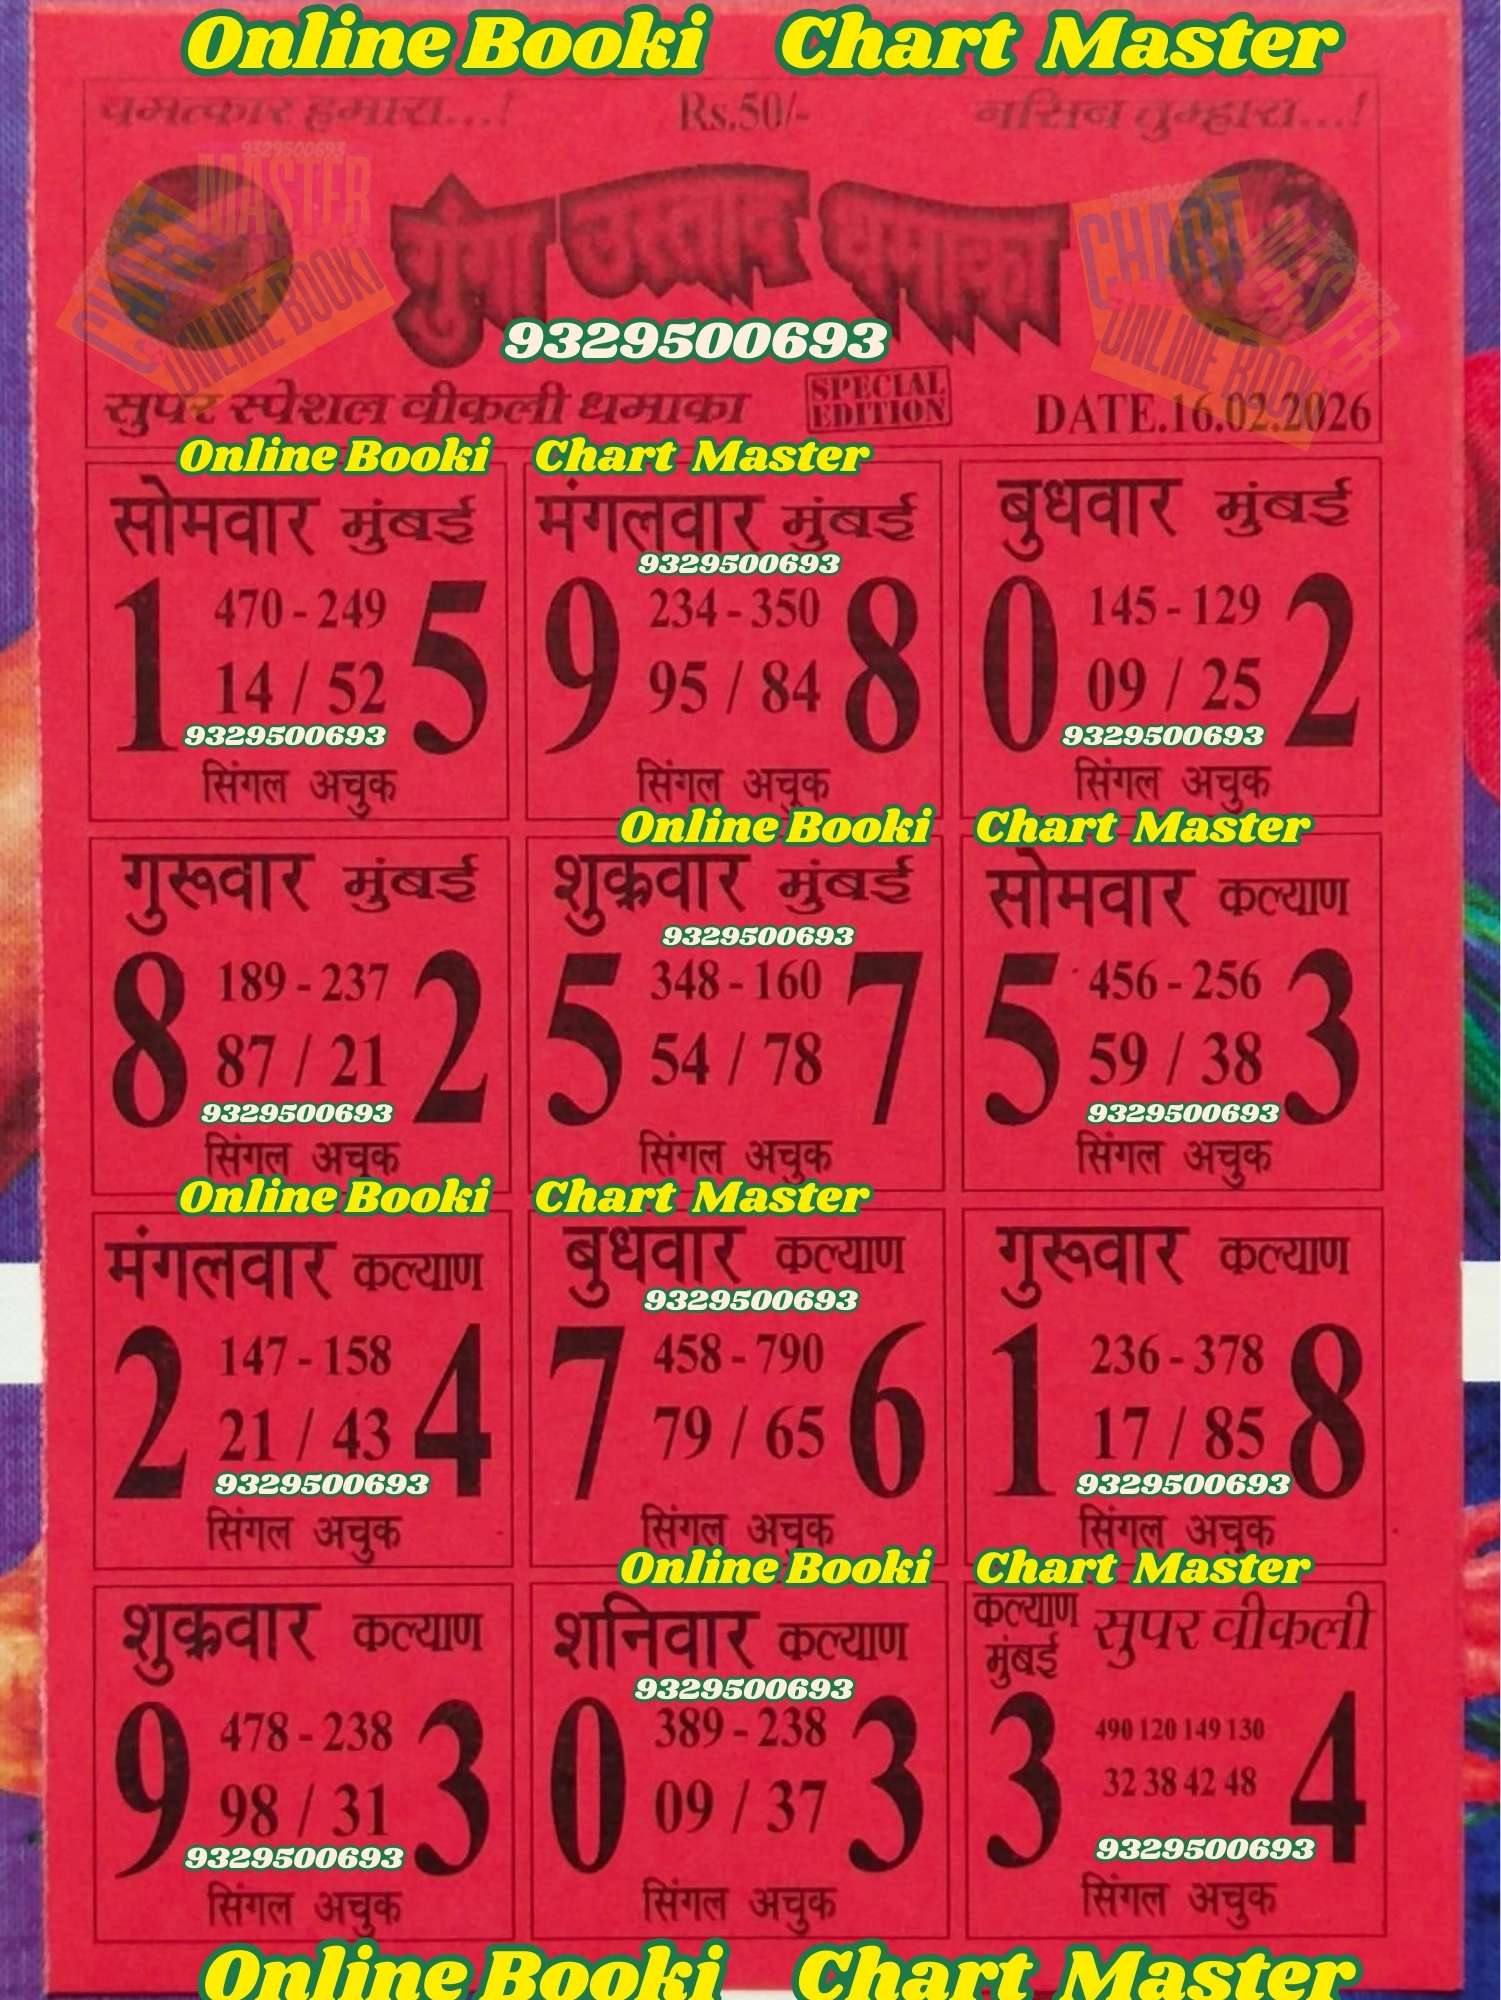 Online Booki Chart Master
चमत्कार हमारा...! Rs.50/- नसिब तुम्हारा...!
गुंगा उस्ताद धमाका
9329500693
सुपर स्पेशल वीकली धमाका SPECIAL EDITION DATE.16.02.2026
Online Booki Chart Master
सोमवार मुंबई
1 470 - 249 5
14 / 52
9329500693
सिंगल अचुक
मंगलवार मुंबई
9329500693
9 234 - 350 8
95 / 84
सिंगल अचुक
बुधवार मुंबई
0 145 - 129 2
09 / 25
9329500693
सिंगल अचुक
Online Booki Chart Master
गुरूवार मुंबई
8 189 - 237 2
87 / 21
9329500693
सिंगल अचुक
शुक्रवार मुंबई
9329500693
5 348 - 160 7
54 / 78
सिंगल अचुक
सोमवार कल्याण
5 456 - 256 3
59 / 38
9329500693
सिंगल अचुक
Online Booki Chart Master
मंगलवार कल्याण
2 147 - 158 4
21 / 43
9329500693
सिंगल अचुक
बुधवार कल्याण
9329500693
7 458 - 790 6
79 / 65
सिंगल अचुक
गुरूवार कल्याण
1 236 - 378 8
17 / 85
9329500693
सिंगल अचुक
Online Booki Chart Master
शुक्रवार कल्याण
9 478 - 238 3
98 / 31
9329500693
सिंगल अचुक
शनिवार कल्याण
9329500693
0 389 - 238 3
09 / 37
सिंगल अचुक
कल्याण मुंबई सुपर वीकली
3 490 120 149 130 4
32 38 42 48
9329500693
सिंगल अचुक
Online Booki Chart Master